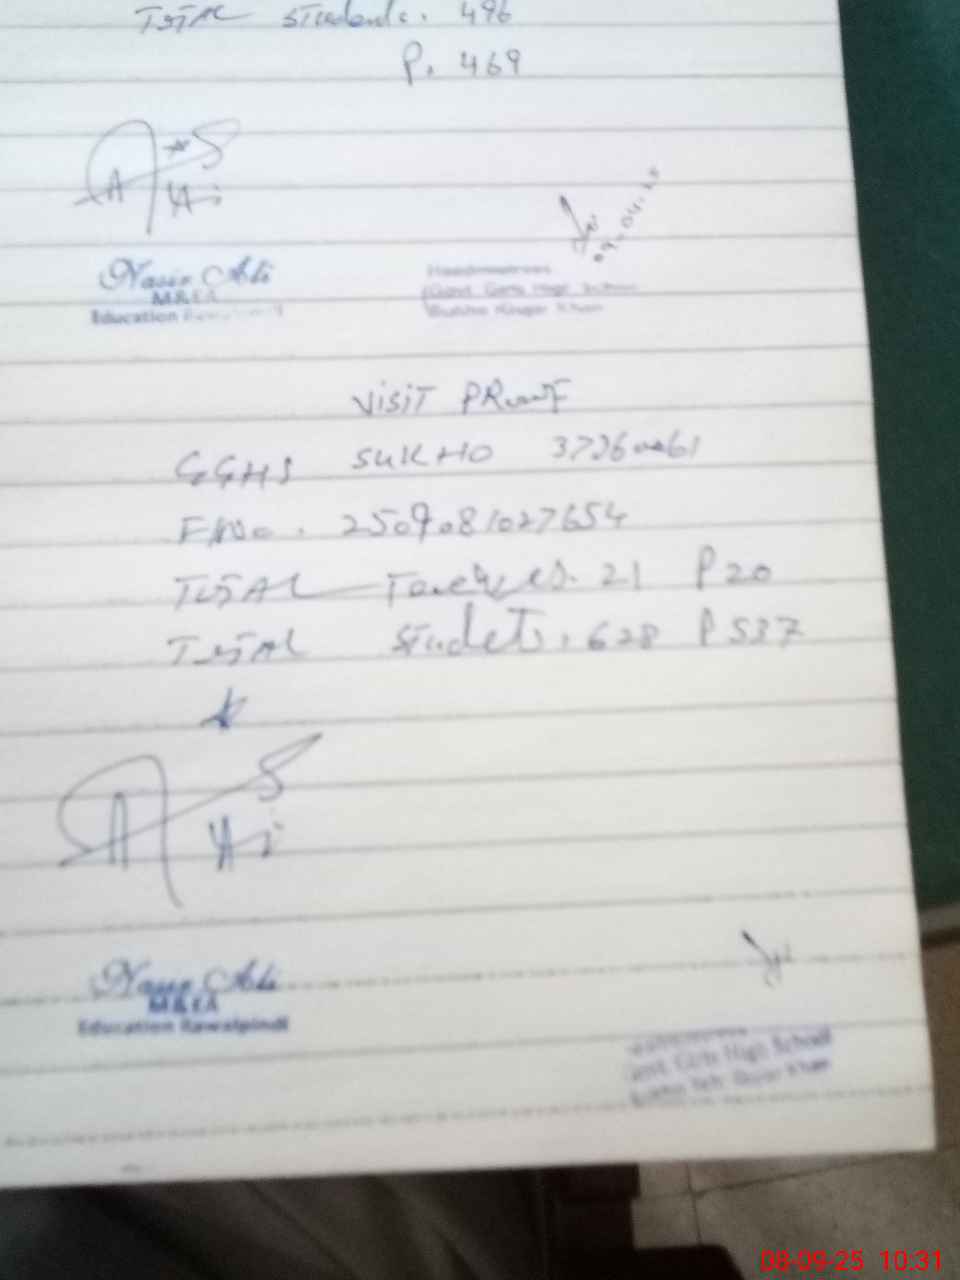 TOTAL Students. 496
P. 469
Nasir Ali
M&EA
Education Rawalpindi
09.04.25
Headmistress
Govt. Girls High School
Sukho Gujar Khan
VISIT PROOF
GGHS SUKHO 37260061
F/No. 2509081027654
TOTAL Teachers. 21 P 20
TOTAL Studets. 628 P 537
Nasir Ali
M&EA
Education Rawalpindi
Govt. Girls High School
Sukho Teh: Gujar Khan
08-09-25 10:31